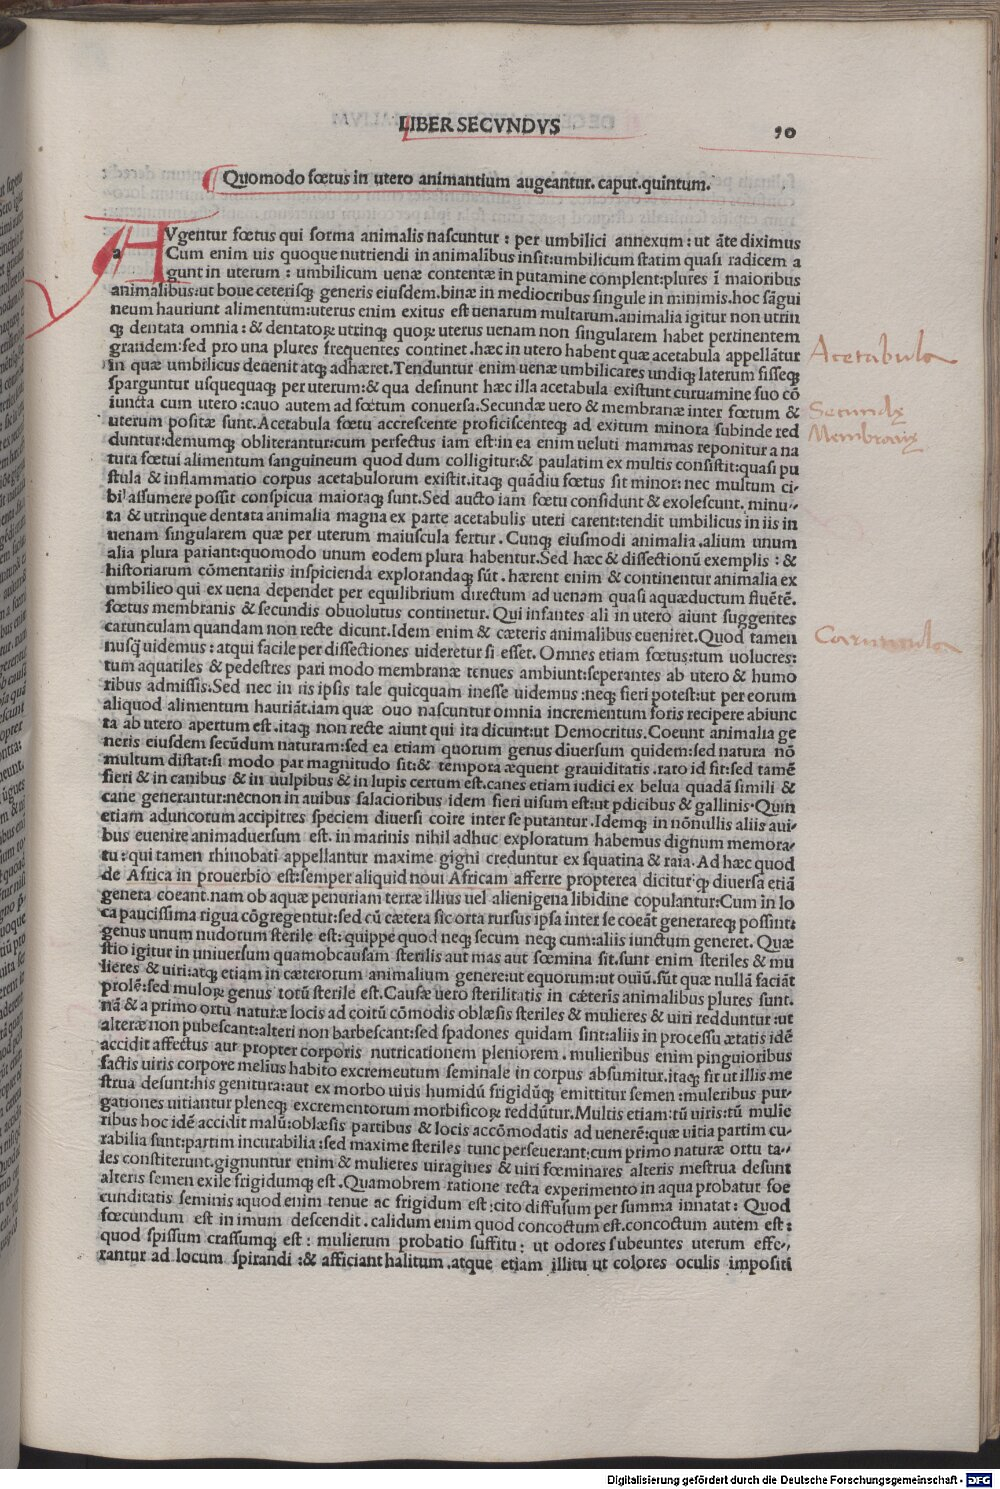 LIBER SECVNDVS
90
Quomodo fœtus in utero animantium augeantur. caput. quintum.
AVgentur fœtus qui forma animalis nascuntur : per umbilici annexum : ut āte diximus
a Cum enim uis quoque nutriendi in animalibus insit:umbilicum statim quasi radicem a
gunt in uterum : umbilicum uenæ contentæ in putamine complent:plures ī maioribus
animalibus:ut boue ceterisq; generis eiusdem.binæ in mediocribus singule in minimis.hoc sāgui
neum hauriunt alimentum:uterus enim exitus est uenarum multarum.animalia igitur non utrin
q; dentata omnia : & dentatoꝝ utrinq; quoꝝ uterus uenam non singularem habet pertinentem
grandem:sed pro una plures frequentes continet.hæc in utero habent quæ acetabula appellātur
in quæ umbilicus deuenit atq; adhæret.Tenduntur enim uenæ umbilicares undiq; laterum fisseq;
sparguntur usquequaq; per uterum:& qua desinunt hæc illa acetabula existunt curuamine suo cō
iuncta cum utero:cauo autem ad fœtum conuersa.Secundæ uero & membranæ inter fœtum &
uterum positæ sunt.Acetabula fœtu accrescente proficiscenteq; ad exitum minora subinde red
duntur:demumq; obliterantur:cum perfectus iam est:in ea enim ueluti mammas reponitur a na
tura fœtui alimentum sanguineum quod dum colligitur:& paulatim ex multis consistit:quasi pu
stula & inflammatio corpus acetabulorum existit.itaq; quādiu fœtus sit minor: nec multum ci-
bi assumere possit conspicua maioraq; sunt.Sed aucto iam fœtu considunt & exolescunt. minu-
ta & utrinque dentata animalia magna ex parte acetabulis uteri carent:tendit umbilicus in iis in
uenam singularem quæ per uterum maiuscula fertur. Cunq; eiusmodi animalia .alium unum
alia plura pariant:quomodo unum eodem plura habentur.Sed hæc & dissectionū exemplis : &
historiarum cōmentariis inspicienda explorandaq; sūt. hærent enim & continentur animalia ex
umbilico qui ex uena dependet per equilibrium directum ad uenam quasi aquæductum fluētē.
fœtus membranis & secundis obuolutus continetur. Qui infantes ali in utero aiunt suggentes
carunculam quandam non recte dicunt.Idem enim & cæteris animalibus eueniret.Quod tamen
nusq̄ uidemus : atqui facile per dissectiones uideretur si esset. Omnes etiam fœtus:tum uolucres:
tum aquatiles & pedestres pari modo membranæ tenues ambiunt:seperantes ab utero & humo
ribus admissis:Sed nec in iis ipsis tale quicquam inesse uidemus :neq; fieri potest:ut per eorum
aliquod alimentum hauriāt.iam quæ ouo nascuntur omnia incrementum foris recipere abiunc
ta ab utero apertum est.itaq; non recte aiunt qui ita dicunt:ut Democritus.Coeunt animalia ge
neris eiusdem secūdum naturam:sed ea etiam quorum genus diuersum quidem:sed natura nō
multum distat:si modo par magnitudo sit:& tempora æquent grauiditatis .rato id sit:sed tamē
fieri & in canibus & in uulpibus & in lupis certum est.canes etiam iudici ex belua quadā simili &
cane generantur:necnon in auibus salacioribus idem fieri uisum est:ut pdicibus & gallinis.Quin
etiam aduncorum accipitres speciem diuersi coire inter se putantur. Idemq; in nōnullis aliis aui-
bus euenire animaduersum est. in marinis nihil adhuc exploratum habemus dignum memora-
tu : qui tamen rhinobati appellantur maxime gigni creduntur ex squatina & raia. Ad hæc quod
de Africa in prouerbio est:semper aliquid noui Africam afferre propterea dicitur q̄ diuersa etiā
genera coeant.nam ob aquæ penuriam terræ illius uel alienigena libidine copulantur:Cum in lo
ca paucissima rigua cōgregentur:sed cū cætera sic orta rursus ipsa inter se coeāt generareq; possint:
genus unum nudorum sterile est: quippe quod neq; secum neq; cum:aliis iunctum generet. Quæ
stio igitur in uniuersum quamobcausam sterilis aut mas aut fœmina sit.sunt enim steriles & mu
lieres & uiri:atq; etiam in cæterorum animalium genere:ut equorum:ut ouiū.sūt quæ nullā faciāt
prolē:sed muloꝝ genus totū sterile est.Causæ uero sterilitatis in cæteris animalibus plures sunt.
nā & a primo ortu naturæ locis ad coitū cōmodis oblæsis steriles & mulieres & uiri redduntur :ut
alteræ non pubescant:alteri non barbescant:sed spadones quidam sint:aliis in processu ætatis idē
accidit affectus aut propter corporis nutricationem pleniorem . mulieribus enim pinguioribus
factis uiris corpore melius habito excrementum seminale in corpus absumitur.itaq; fit ut illis me
strua desunt:his genitura:aut ex morbo uiris humidū frigidūq; emittitur semen :muleribus pur-
gationes uitiantur pleneq; excrementorum morbificoꝝ reddūtur.Multis etiam:tū uiris:tū mulie
ribus hoc idē accidit malū:oblæsis partibus & locis accōmodatis ad uenerē:quæ uitia partim cu-
rabilia sunt:partim incurabilia :sed maxime steriles tunc perseuerant:cum primo naturæ ortu ta-
les constiterunt.gignuntur enim & mulieres uiragines & uiri fœminares alteris mēstrua desunt
alteris semen exile frigidumq; est .Quamobrem ratione recta experimento in aqua probatur foe
cunditatis seminis :quod enim tenue ac frigidum est :cito diffusum per summa innatat : Quod
fœcundum est in imum descendit . calidum enim quod concoctum est.concoctum autem est :
quod spissum crassumq; est : mulierum probatio suffitu : ut odores subeuntes uterum effe-
rantur ad locum spirandi :& afficiant halitum .atque etiam illitu ut colores oculis impositi
Acetabula
Secundę
Membranę
Caruncula
Digitalisierung gefördert durch die Deutsche Forschungsgemeinschaft - DFG